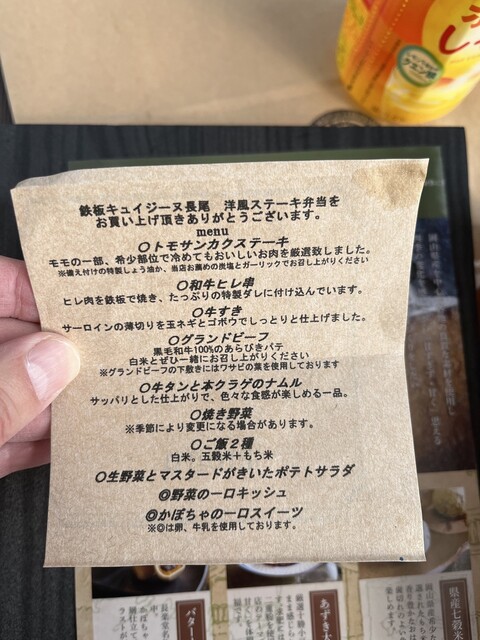 鉄板キュイジーヌ長尾　洋風ステーキ弁当を
お買い上げ頂きありがとうございます。
menu
〇トモサンカクステーキ
モモの一部、希少部位で冷めてもおいしいお肉を厳選致しました。
※備え付けの特製しょう油か、当店お薦めの炭塩とガーリックでお召し上がりください
〇和牛ヒレ串
ヒレ肉を鉄板で焼き、たっぷりの特製ダレに付け込んでいます。
〇牛すき
サーロインの薄切りを玉ネギとゴボウでしっとりと仕上げました。
〇グランドビーフ
黒毛和牛100%のあらびきパテ
白米とぜひ一緒にお召し上がりください
※グランドビーフの下敷きにはワサビの葉を使用しております
〇牛タンと本クラゲのナムル
サッパリとした仕上がりで、色々な食感が楽しめる一品。
〇焼き野菜
※季節により変更になる場合があります。
〇ご飯２種
白米。五穀米＋もち米
〇生野菜とマスタードがきいたポテトサラダ
◎野菜の一口キッシュ
◎かぼちゃの一口スイーツ
※◎は卵、牛乳を使用しております。
クエン酸
県産七穀米
あずき
バター